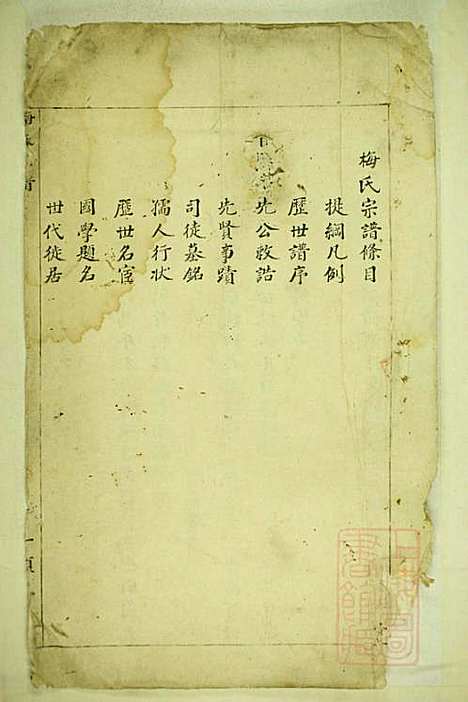 梅氏宗譜條目
提綱凡例
歷世譜序
先公敕誥
先賢事蹟
司徒墓銘
孺人行狀
歷世名宦
國學題名
世代徙居